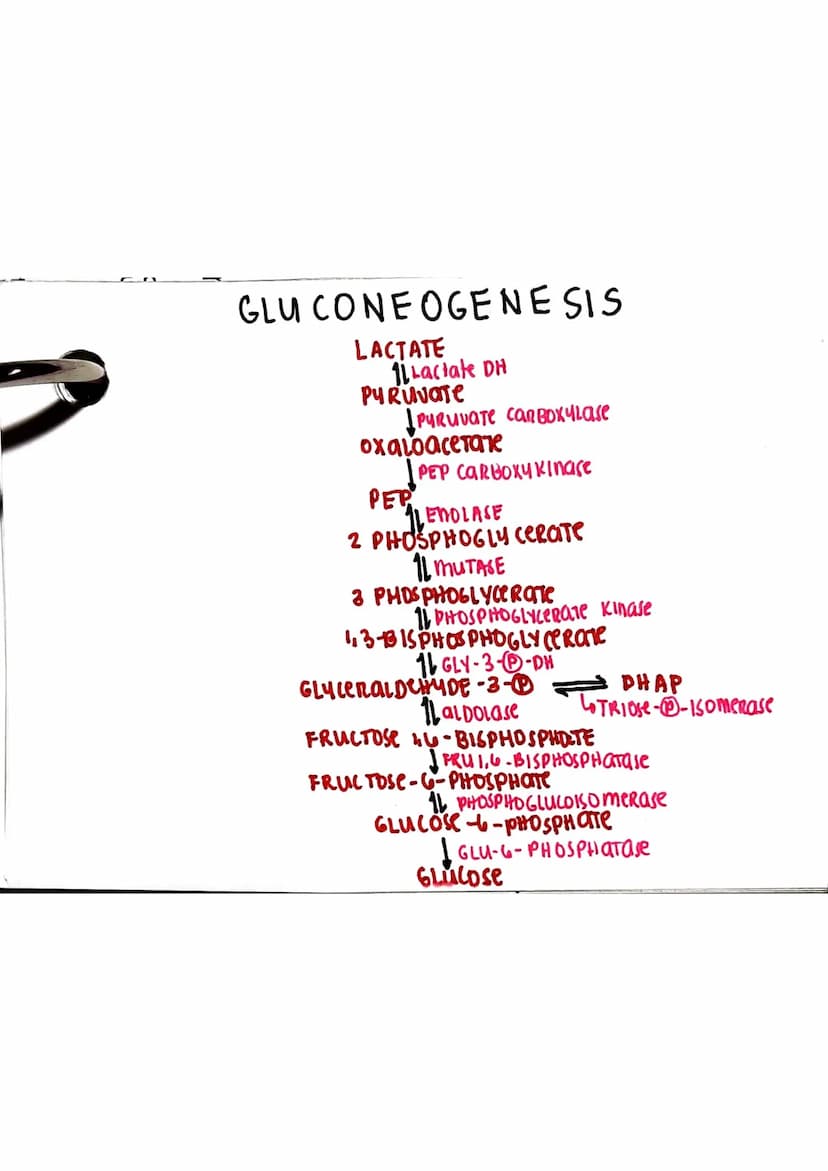 GLUCONEOGENESIS
LACTATE
Lactate DH
PYRUVATE
PYRUVATE CARBOXYLASE
OXALOACETATE
PEP CARBOXYKINASE
PEP
ENOLASE
2 PHOSPHOGLYCERATE
MUTASE
3 PHOSPHOGLYCERATE
PHOSPHOGLYCERATE KINASE
1,3-BISPHOSPHOGLYCERATE
GLY-3-Ⓟ-DH
GLYCERALDEHYDE-3-Ⓟ ⇌ DHAP
ALDOLASE ↳TRIOSE-Ⓟ-ISOMERASE
FRUCTOSE 1,6-BISPHOSPHATE
FRU 1,6-BISPHOSPHATASE
FRUCTOSE-6-PHOSPHATE
PHOSPHOGLUCOISOMERASE
GLUCOSE-6-PHOSPHATE
GLU-6-PHOSPHATASE
GLUCOSE